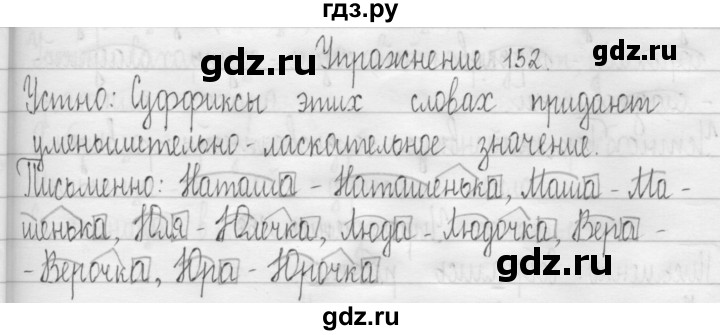 гдз.ру
Упражнение 152.
gdz.ru gdz.ru
Устно: Суффиксы этих словах придают
уменьшительно-ласкательное значение.
Письменно: Наташа - Наташенька, Маша - Ма-
шенька, Юля - Юлечка, Люда - Людочка, Вера -
- Верочка, Юра - Юрочка
gdz.ru gdz.ru
гдз.ру